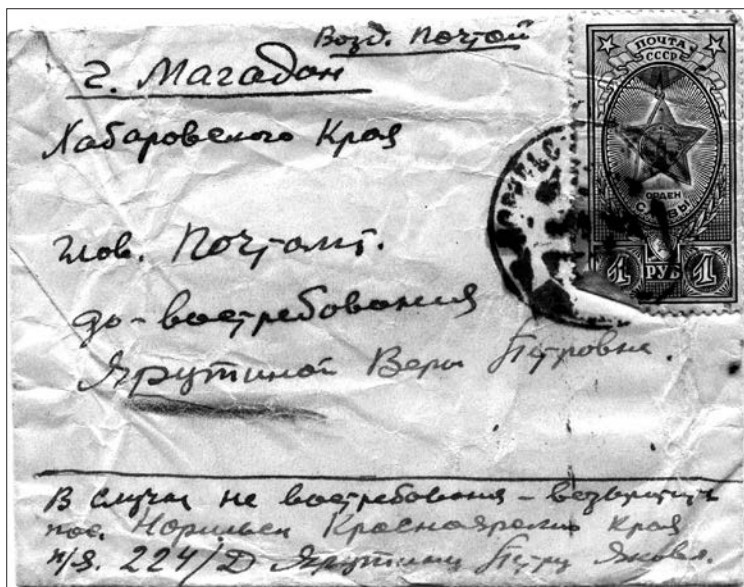 Возд. Почтой
г. Магадан
Хабаровского Края
Глав. Почтамт.
до-востребования
Ярутиной Вере Петровне.
В случае не востребования - возвратить
пос. Норильск Красноярского Края
п/я. 224/Д Ярутину Петру Яковл.
ПОЧТА
СССР
ОРДЕН
СЛАВЫ
1 РУБ 1